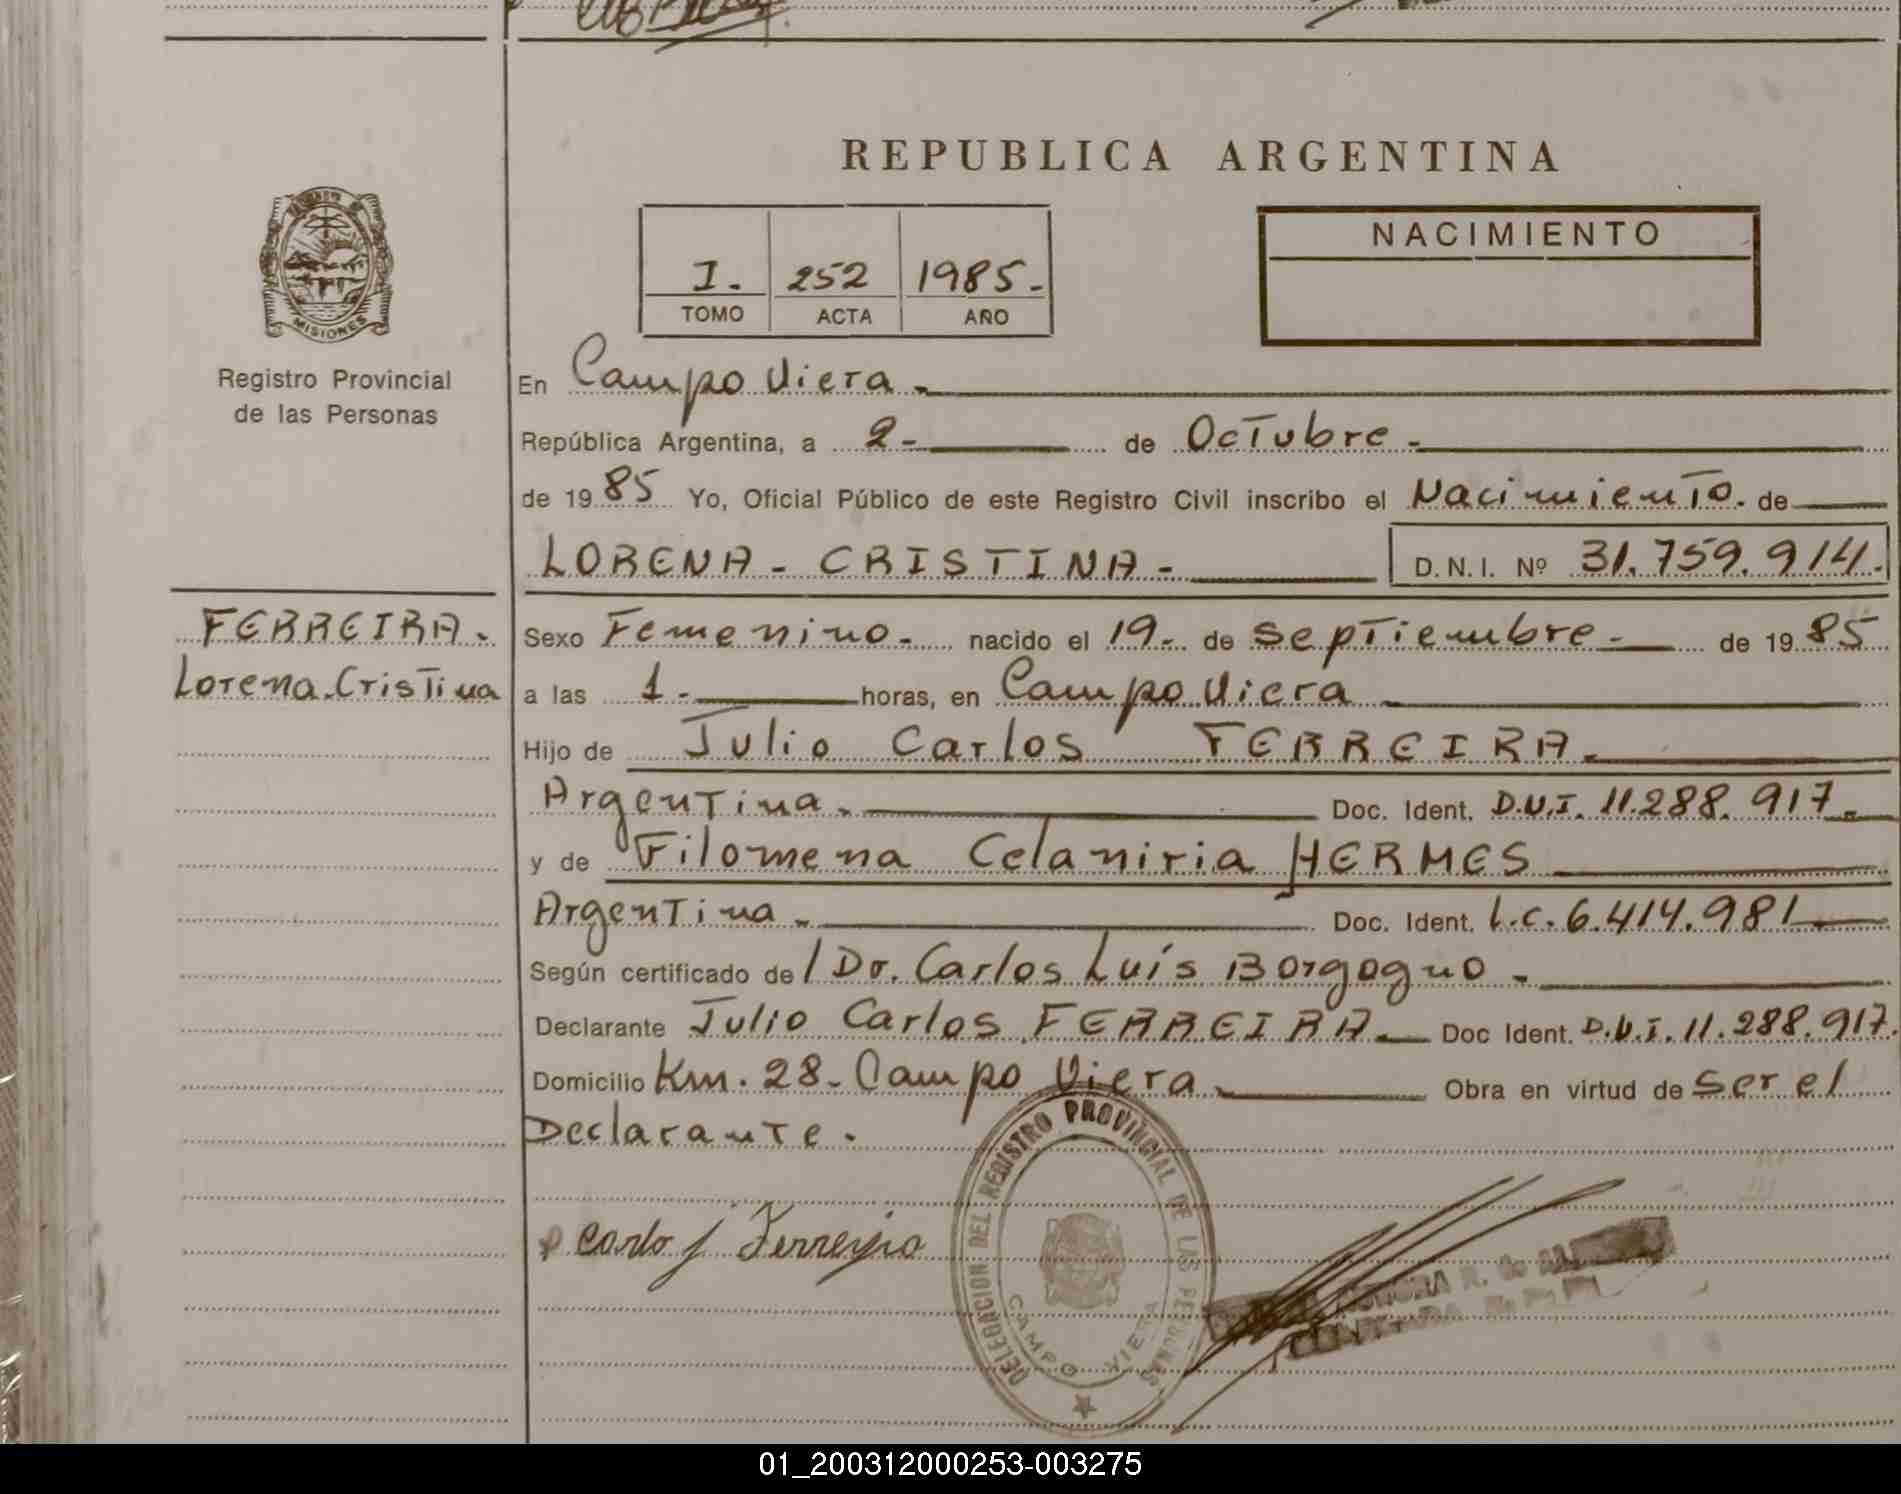 REPUBLICA ARGENTINA
MISIONES
Registro Provincial
de las Personas
I. 252 1985.-
TOMO ACTA AÑO
NACIMIENTO
En Campo Viera.-
República Argentina, a 2- de Octubre.-
de 1985 Yo, Oficial Público de este Registro Civil inscribo el Nacimiento. de
LORENA - CRISTINA - D.N.I. Nº 31.759.914.
FERREIRA.
Lorena Cristina
Sexo Femenino.- nacido el 19.- de septiembre.- de 1985
a las 1.- horas, en Campo Viera
Hijo de Julio Carlos FERREIRA.
Argentina.- Doc. Ident. D.N.I. 11.288.917.-
y de Filomena Celaniria HERMES
Argentina.- Doc. Ident. L.C. 6.414.981
Según certificado de / Dr. Carlos Luís Borgogno.-
Declarante Julio Carlos FERREIRA.- Doc Ident. D.N.I. 11.288.917.
Domicilio Km. 28- Campo Viera.- Obra en virtud de ser el
Declarante.
DELEGACION DEL REGISTRO PROVINCIAL DE LAS PERSONAS
CAMPO VIERA
01_200312000253-003275